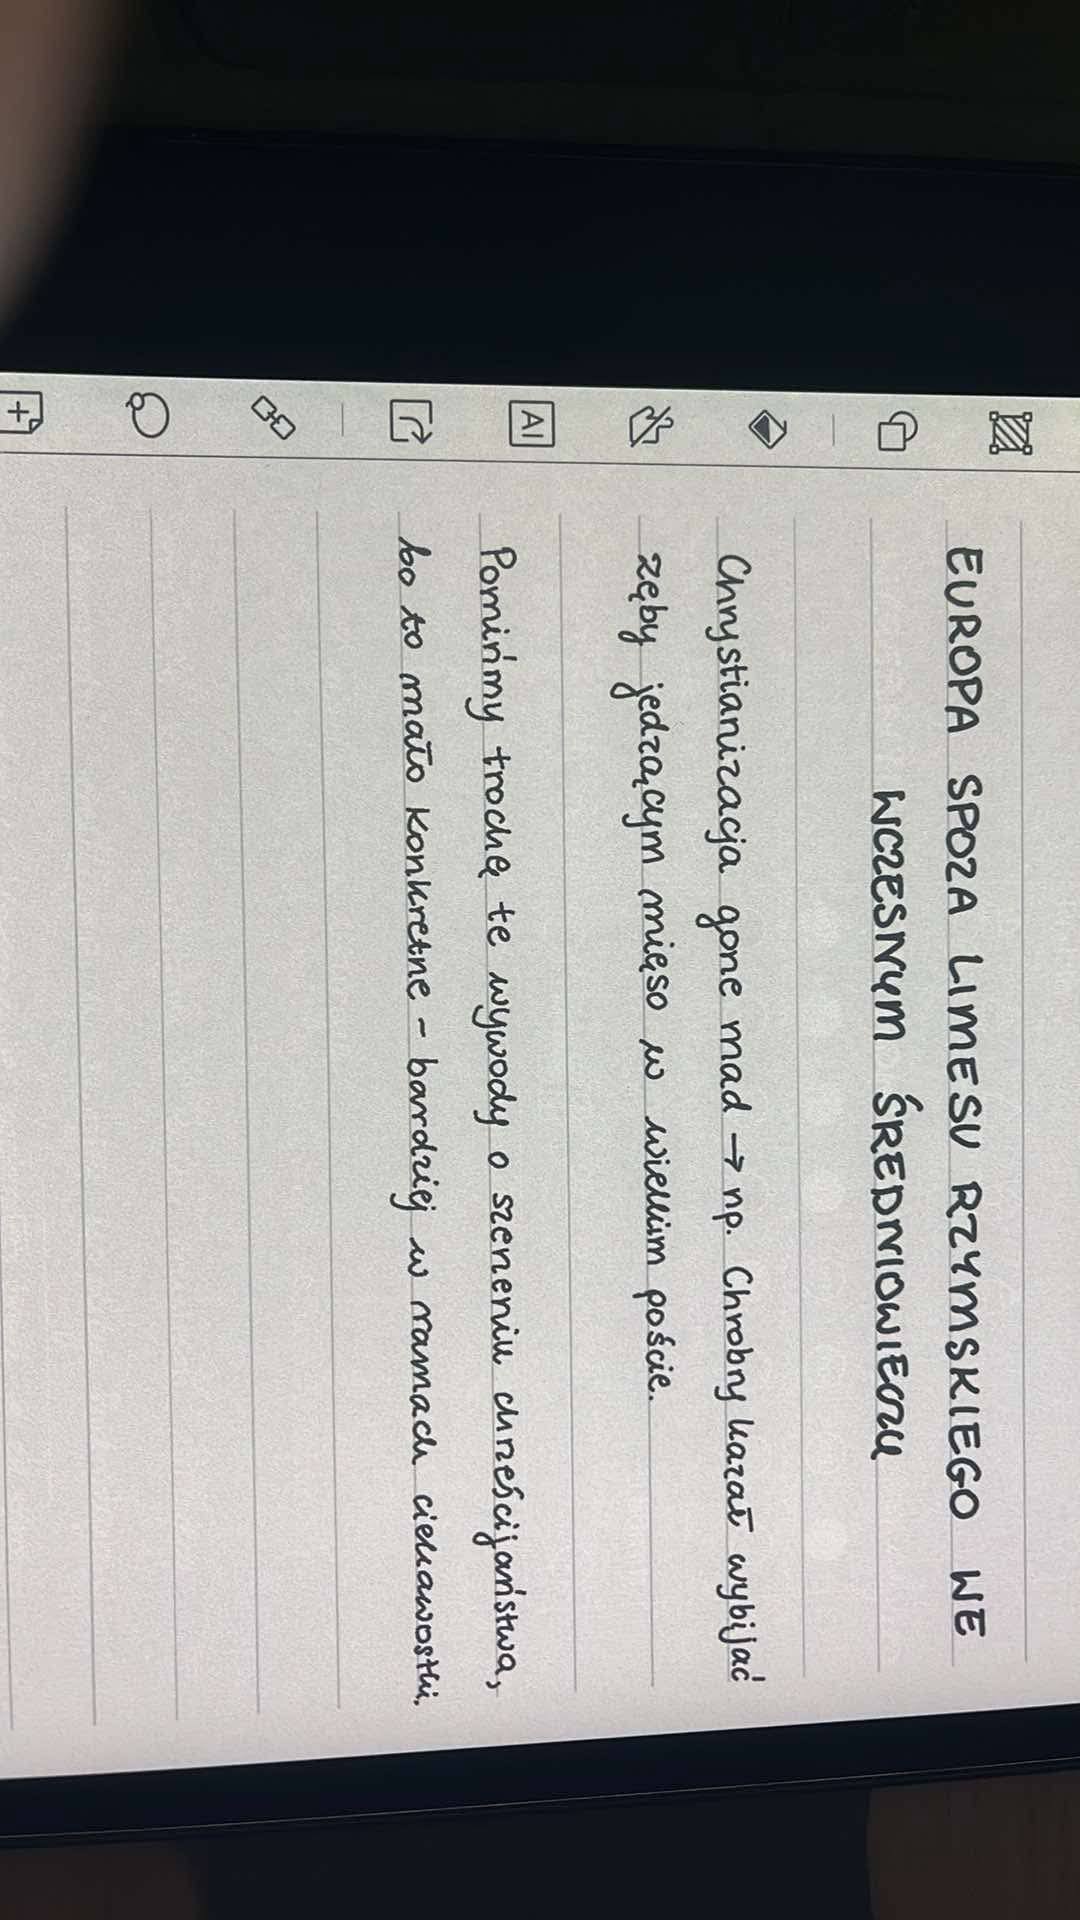 EUROPA SPOZA LIMESU RZYMSKIEGO WE
WCZESNYM ŚREDNIOWIECZU
Chrystianizacja gone mad → np. Chrobry kazał wybijać
zęby jedzącym mięso w wielkim poście.
Pomińmy trochę te wywody o szerzeniu chrześcijaństwa,
bo to mało konkretne - bardziej w ramach ciekawostki.
AI